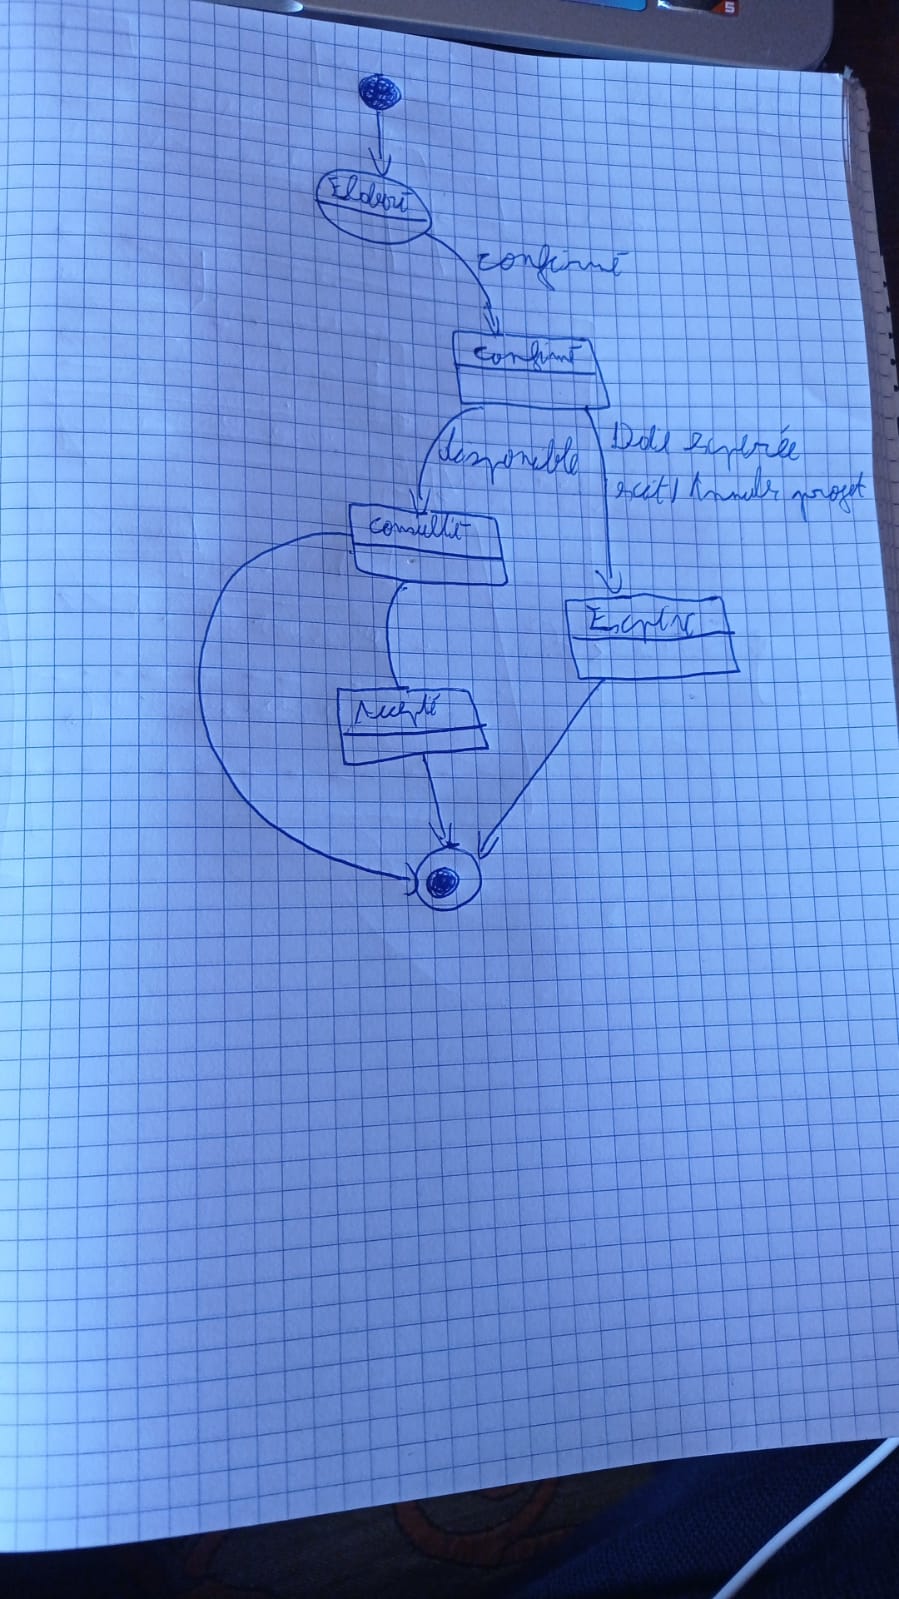 confirmé
confirmé
disponible
Date expirée
exit / Annuler projet
consulté
Accepté